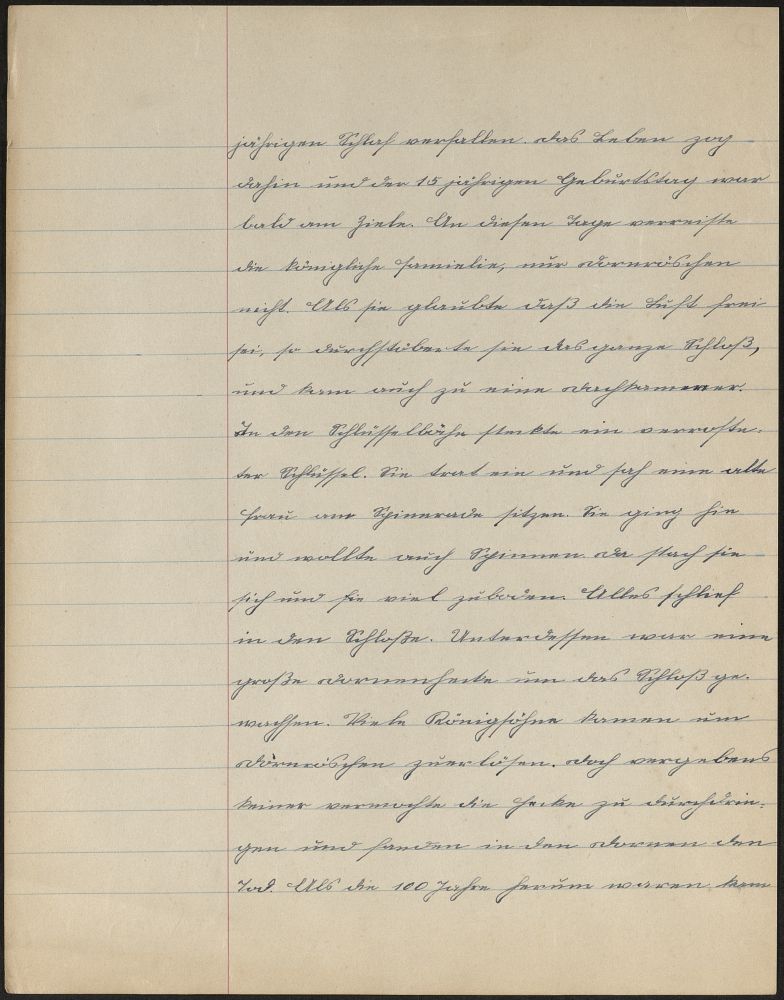 jährigen Schlaf verfallen. das Leben zog
dahin und der 15 jährigen Geburtstag war
bald am Ziele. An diesen Tage verreiste
die königliche Familie, nur Dornröschen
nicht. Als sie glaubte daß die Luft frei
sei, so durchstöberte sie das ganze Schloß,
und kam auch zu eine Dachkammer.
In den Schlüssellöche steckte ein verroste-
ter Schlüssel. Sie trat ein und sah eine alte
Frau am Spinerade sitzen. Sie ging hin
und wollte auch Spinnen. da stach sie
sich und sie viel zuboden. Alles schlief
in den Schloße. Unterdessen war eine
große Dornenhecke um das Schloß ge-
wachsen. Viele Königsöhne kamen um
Dörnröschen zuerlösen. doch vergebens
keiner vermochte die Hecke zu durchdrin-
gen und fanden in den Dornen den
Tod. Als die 100 Jahre herum waren kam